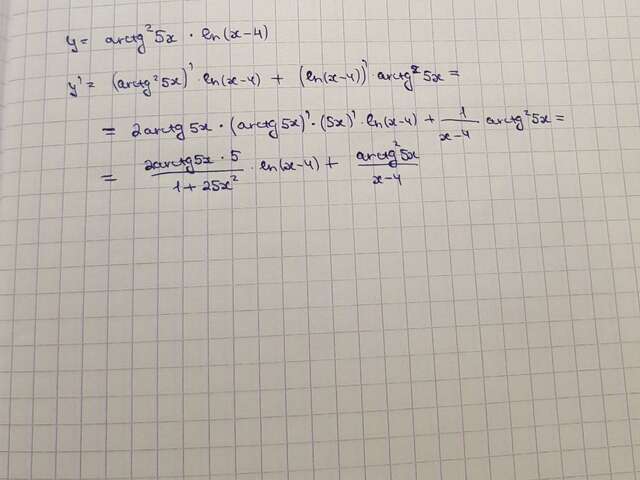 y = arctg²5x · ln(x-4)
y' = (arctg²5x)' · ln(x-4) + (ln(x-4))' · arctg²5x =
= 2arctg5x · (arctg5x)' · (5x)' · ln(x-4) + 1/(x-4) arctg²5x =
= (2arctg5x · 5)/(1 + 25x²) · ln(x-4) + (arctg²5x)/(x-4)